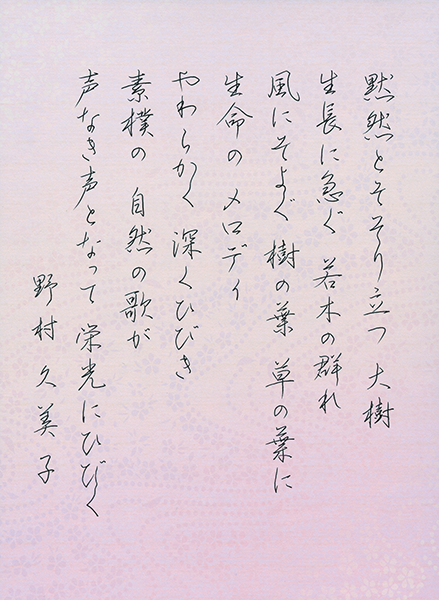 黙然とそそり立つ 大樹
生長に急ぐ 若木の群れ
風にそよぐ 樹の葉 草の葉に
生命の メロディ
やわらかく 深くひびき
素樸の 自然の歌が
声なき声となって 栄光にひびく
野村久美子